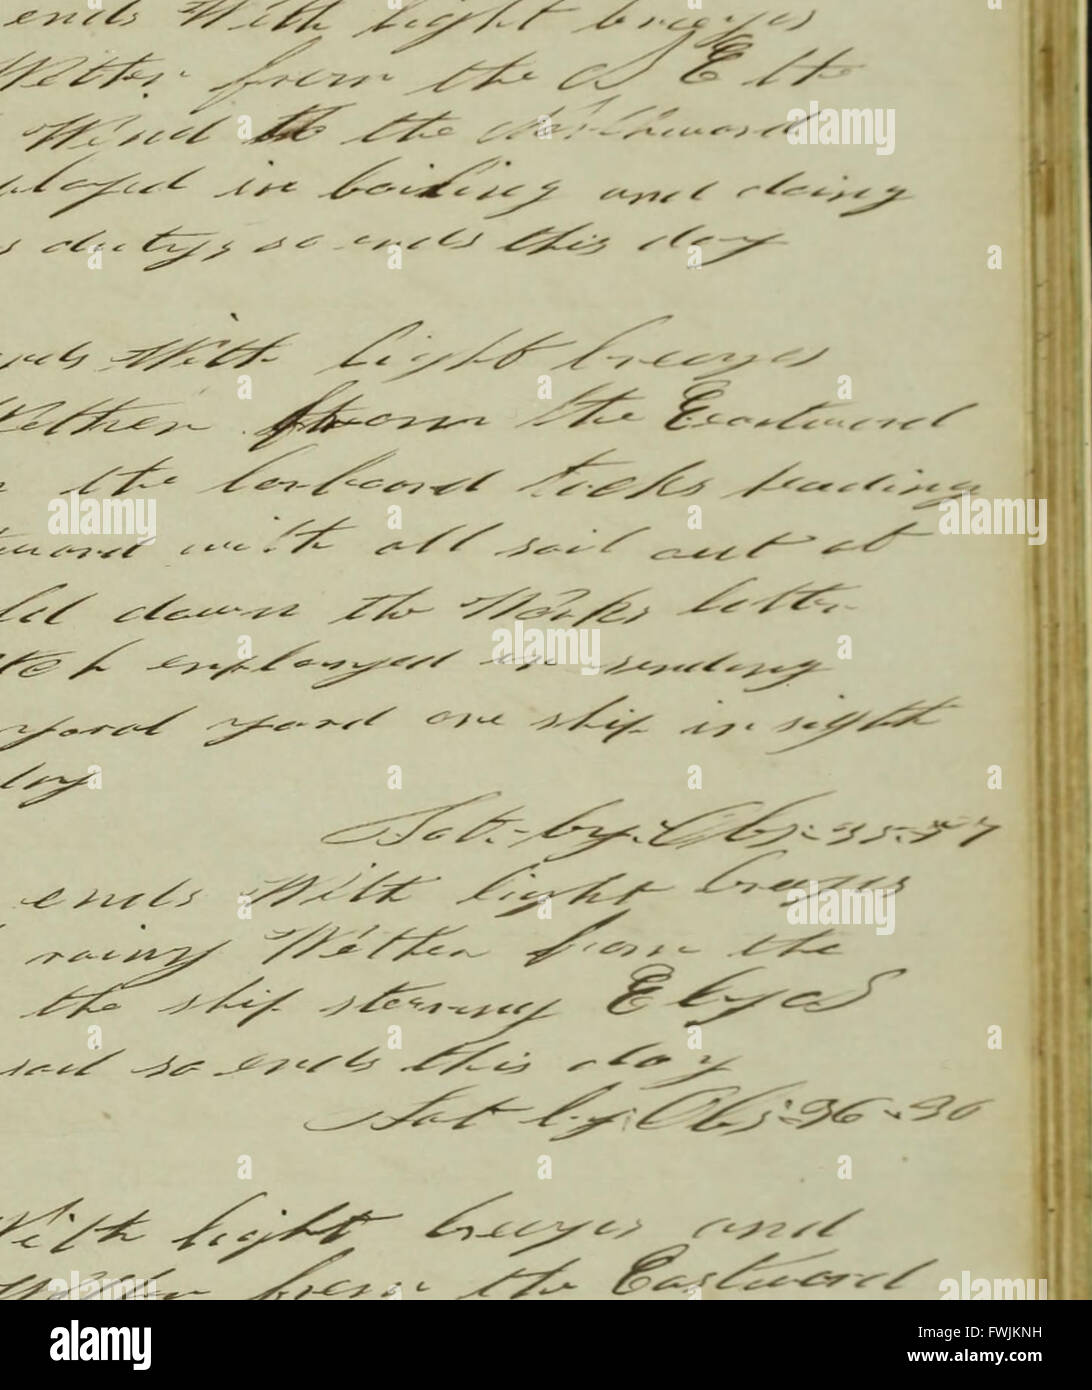 ends With light breezes
Wether from the S E the
Wind to the Northward
ployed in boiling and doing
s dutys so ends this day
nds With light breezes
Wether from the Eastward
the larboard tacks heading
tward with all sail out at
ld down the Works latter
tch employed in sending
yoral yard one ship in sight
day
Lat. by. Obs: 35-37
ends With light breezes
rainy Wether from the
the ship steering E by S
sail so ends this day
Lat by Obs: 36-30
With light breezes and
Wether from the Eastward
alamy stock photo
FWJKNH
www.alamy.com